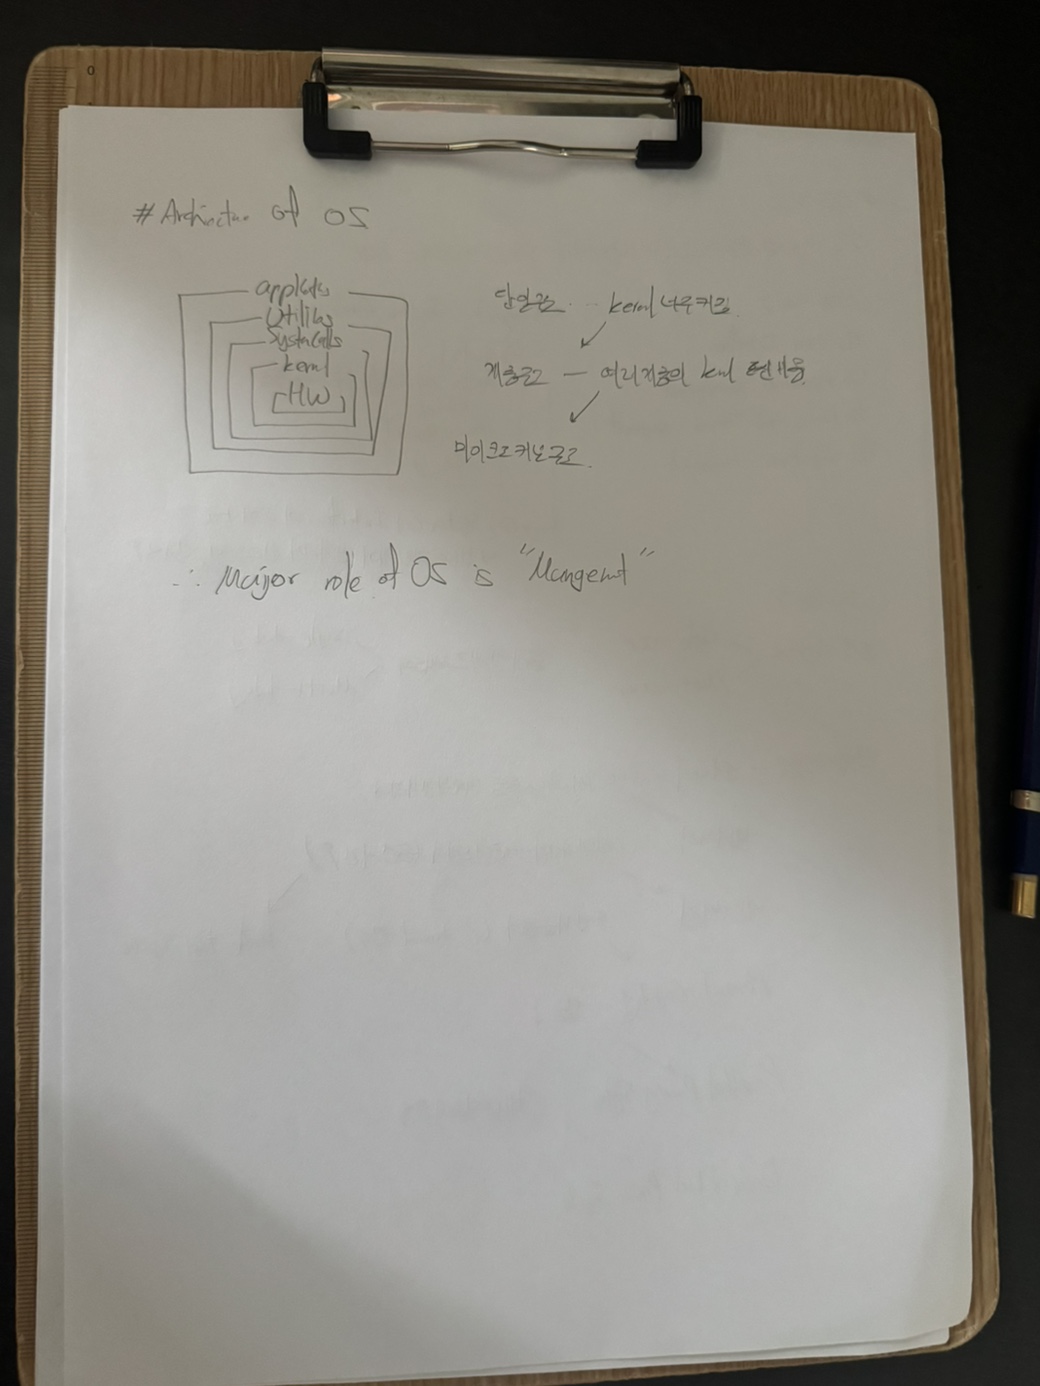 # Architectur of OS
applicats
Utilitis
Systemcalls
kernel
HW
단일구조 ... kernel 너무커짐.
계층구조 — 여러계층의 kernl
마이크로커널구조.
∴ Major role of OS is "Mangemt"
0